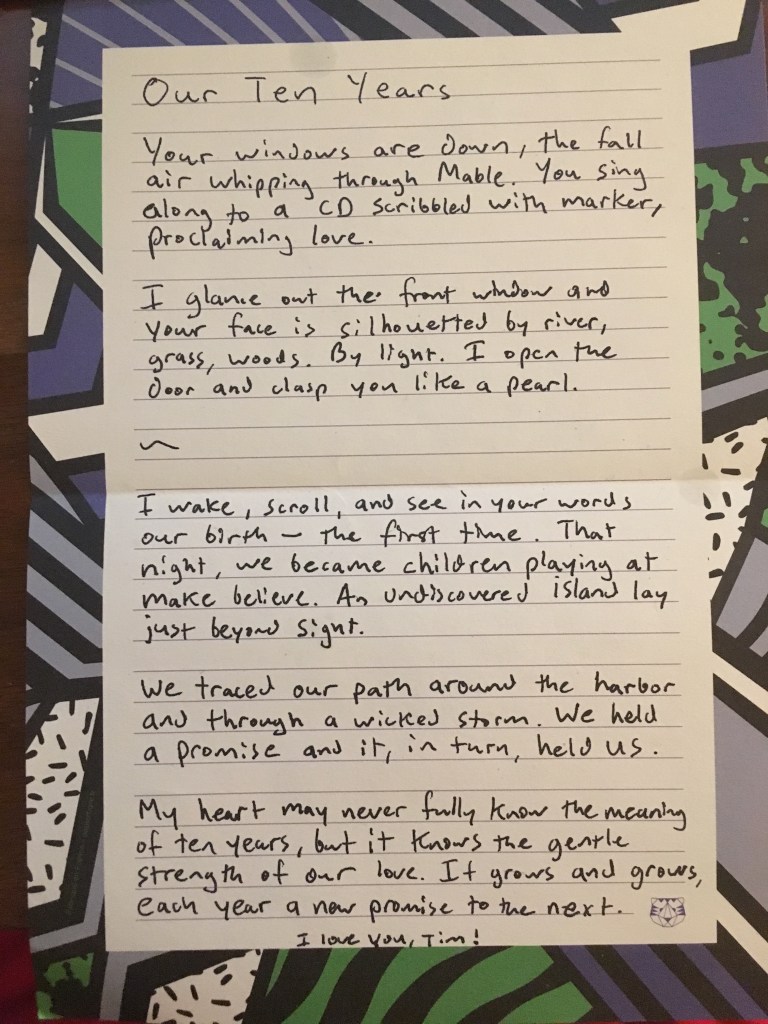 Our Ten Years
Your windows are down, the fall
air whipping through Mable. You sing
along to a CD scribbled with marker,
proclaiming love.
I glance out the front window and
your face is silhouetted by river,
grass, woods. By light. I open the
door and clasp you like a pearl.
~
I wake, scroll, and see in your words
our birth — the first time. That
night, we became children playing at
make believe. An undiscovered island lay
just beyond sight.
We traced our path around the harbor
and through a wicked storm. We held
a promise and it, in turn, held us.
My heart may never fully know the meaning
of ten years, but it knows the gentle
strength of our love. It grows and grows,
each year a new promise to the next.
I love you, Tim!